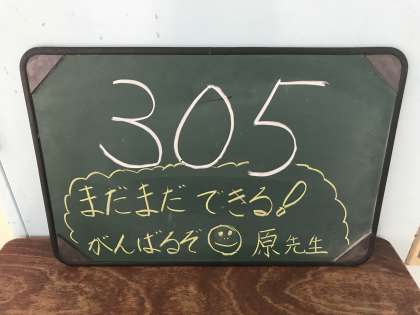 305
まだまだできる!
がんばるぞ 原先生